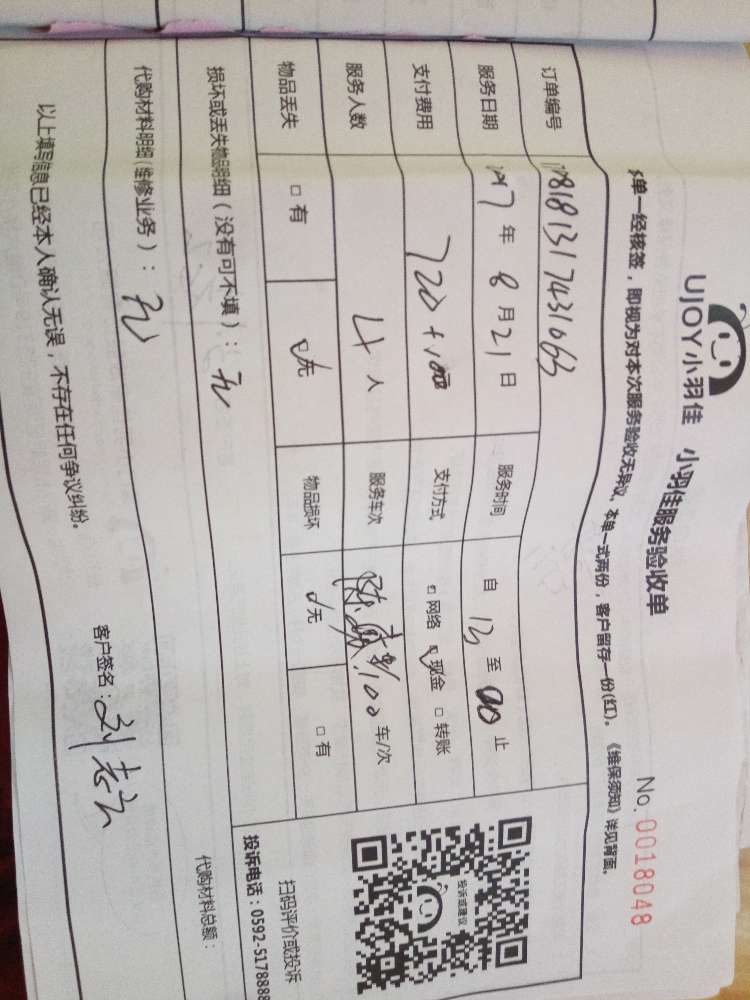 UJOY小羽佳 小羽佳服务验收单
No. 0018048
单一经核签，即视为对本次服务验收无异议。本单一式两份，客户留存一份(红)。《维保须知》详见背面。
订单编号
服务日期 年 8 月 21 日 服务时间 自 至 止
支付费用 支付方式 □ 网络 ☑ 现金 □ 转账
服务人数 4 人 服务车次 100 车/次
物品丢失 □ 有 ☑ 无 物品损坏 ☑ 无 □ 有
损坏或丢失物品明细（没有可不填）：无
代购材料明细(维修业务)：无 代购材料总额：
以上填写信息已经本人确认无误，不存在任何争议纠纷。
客户签名：刘志云
投诉或建议
扫码评价或投诉
投诉电话：0592-5178888